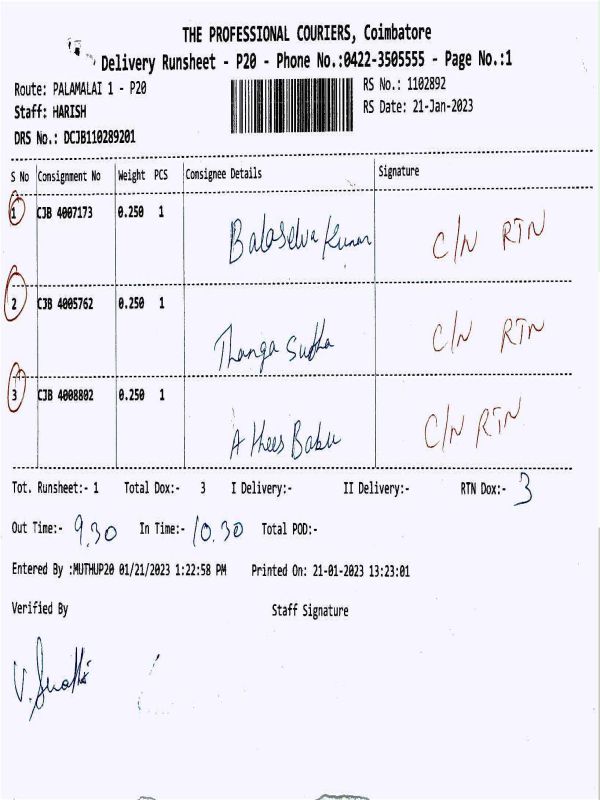 THE PROFESSIONAL COURIERS, Coimbatore
Delivery Runsheet - P20 - Phone No.:0422-3505555 - Page No.:1
Route: PALAMALAI 1 - P20
RS No.: 1102892
Staff: HARISH
RS Date: 21-Jan-2023
DRS No.: DCJB110289201
S No Consignment No Weight PCS Consignee Details Signature
1 CJB 4007173 0.250 1 Balaselva Kumar C/N RTN
2 CJB 4005762 0.250 1 Thanga Sudha C/N RTN
3 CJB 4008802 0.250 1 Athees Babu C/N RTN
Tot. Runsheet:- 1 Total Dox:- 3 I Delivery:- II Delivery:- RTN Dox:- 3
Out Time:- 9.30 In Time:- 10.30 Total POD:-
Entered By :MUTHUP20 01/21/2023 1:22:58 PM Printed On: 21-01-2023 13:23:01
Verified By Staff Signature